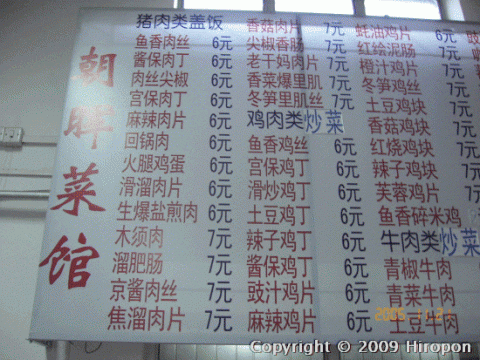 朝晖菜馆
猪肉类盖饭
鱼香肉丝 6元
酱保肉丁 6元
肉丝尖椒 6元
宫保肉丁 6元
麻辣肉片 6元
回锅肉 6元
火腿鸡蛋 6元
滑溜肉片 6元
生爆盐煎肉 6元
木须肉 7元
溜肥肠 7元
京酱肉丝 7元
焦溜肉片 7元
香菇肉片 7元
尖椒香肠 7元
老干妈肉片 7元
香菜爆里肌 7元
冬笋里肌丝 7元
鸡肉类炒菜
鱼香鸡丝 6元
宫保鸡丁 6元
滑炒鸡丁 6元
土豆鸡丁 6元
辣子鸡丁 6元
酱保鸡丁 6元
豉汁鸡片 6元
麻辣鸡片 6元
蚝油鸡片 6元
红绘泥肠 7元
橙汁鸡片 7元
冬笋鸡丝 7元
土豆鸡块 7元
香菇鸡片 7元
红烧鸡块 7元
辣子鸡块 7元
芙蓉鸡片 7元
鱼香碎米鸡
牛肉类炒菜
青椒牛肉
青菜牛肉
土豆牛肉
Copyright © 2009 Hiropon